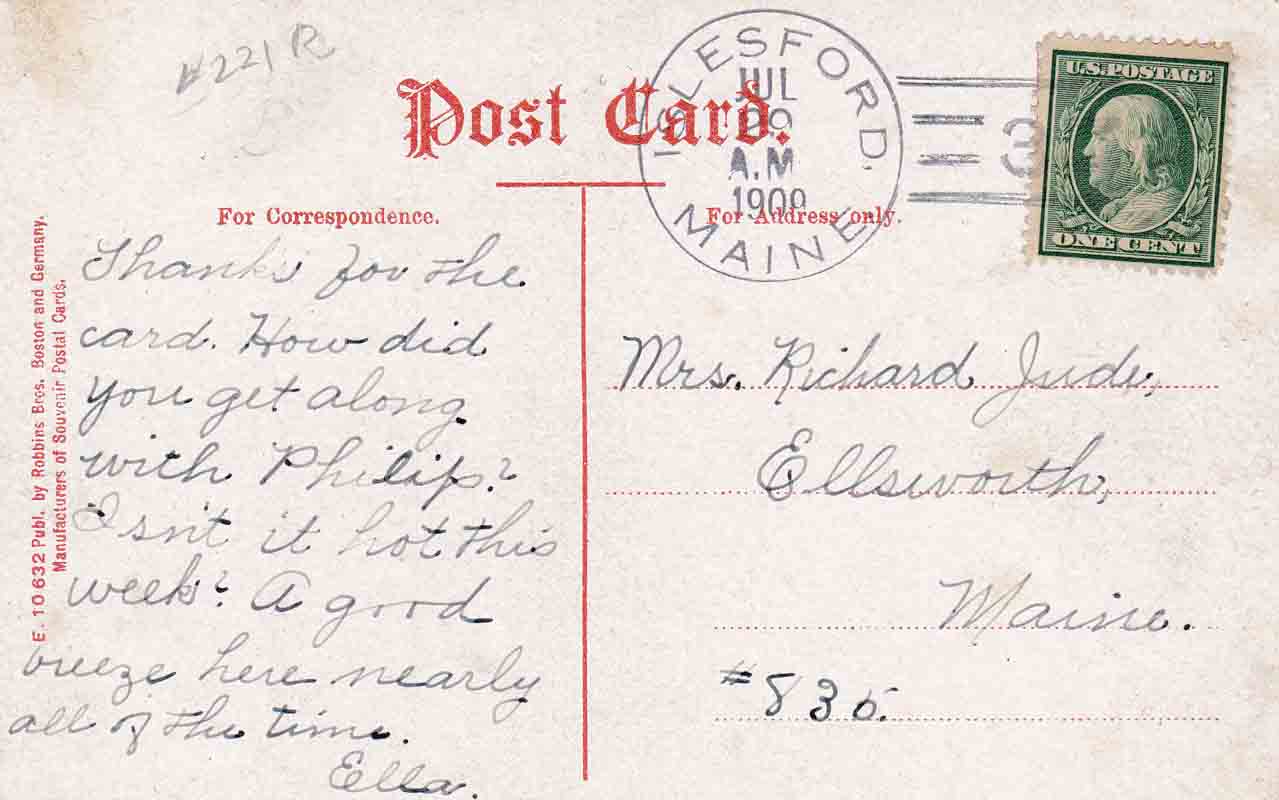 #221 R
Post Card.
ISLESFORD,
JUL
A.M
1909
MAINE
3
U.S. POSTAGE
ONE CENT
For Correspondence.
For Address only.
E. 10632 Publ. by Robbins Bros. Boston and Germany.
Manufacturers of Souvenir Postal Cards.
Thanks for the
card. How did
you get along
with Philip?
Isn't it hot this
week? A good
breeze here nearly
all of the time.
Ella.
Mrs. Richard Jude,
Ellsworth,
Maine.
#835.